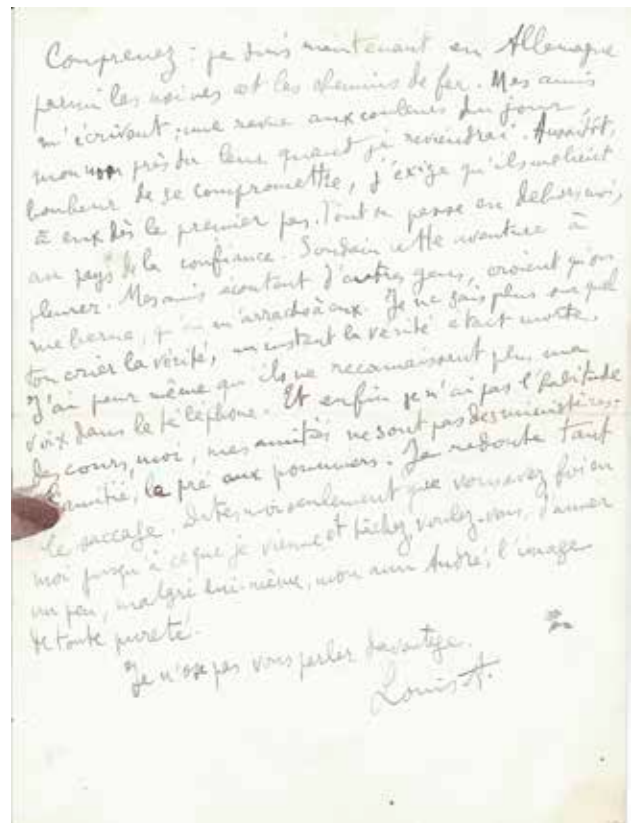 Comprenez : je suis maintenant en Allemagne
parmi les usines et les chemins de fer. Mes amis
m'écrivent : une revue aux couleurs du jour,
mon nom près du leur quand je reviendrai. Aussitôt,
bonheur de se compromettre, j'exige qu'ils me lient
à eux dès le premier pas. Tout se passe en dehors moi,
au pays de la confiance. Soudain cette aventure à
pleurer. Mes amis écoutent d'autres gens, croient qu'on
me berne, qu'on m'arrache à eux. Je ne sais plus sur quel
ton crier la vérité, un instant la vérité était morte.
J'ai peur même qu'ils ne reconnaissent plus ma
voix dans le téléphone. Et enfin je n'ai pas l'habitude
des cours, moi, mes amitiés ne sont pas des ministères.
L'amitié, le pré aux pommiers. Je redoute tant
le saccage. Dites-moi seulement que vous avez foi en
moi jusqu'à ce que je vienne et tâchez, voulez-vous, d'aimer
un peu, malgré lui-même, mon ami André, l'image
de toute pureté.
Je n'ose pas vous parler davantage.
Louis A.